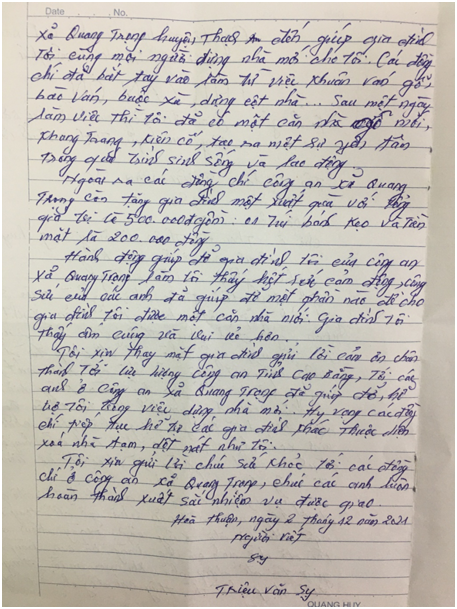 Date No.
xã Quang Trọng huyện Thạch An đến giúp gia đình
tôi cùng mọi người dựng nhà mới cho tôi. Các đồng
chí đã bắt tay vào làm từ việc khuân ván gỗ,
bào ván, buộc xà, dựng cột nhà... Sau một ngày
làm việc thì tôi đã có một căn nhà gỗ mới,
khang trang, kiên cố, tạo ra một sự yên tâm
trong quá trình sinh sống và lao động.
Ngoài ra các đồng chí công an xã Quang
Trọng còn tặng gia đình một xuất quà với
giá trị là 500.000đ gồm: 01 túi bánh kẹo và tiền
mặt là 200.000 đồng
Hành động giúp đỡ gia đình tôi của công an
xã Quang Trọng làm tôi thấy hết sức cảm động, công
sức của các anh đã giúp đỡ một phần nào để cho
gia đình tôi được một căn nhà mới. Gia đình tôi
thấy ấm cúng và vui vẻ hơn.
Tôi xin thay mặt gia đình gửi lời cảm ơn chân
thành tới lực lượng công an Tỉnh Cao Bằng, Tới các
anh ở công an xã Quang Trọng đã giúp đỡ, hỗ
trợ tôi trong việc dựng nhà mới. Hy vọng các đồng
chí tiếp tục hỗ trợ các gia đình khác thuộc diện
xoá nhà tạm, dột nát như tôi.
Tôi xin gửi lời chúc sức khỏe tới các đồng
chí ở công an xã Quang Trọng, chúc các anh luôn
hoàn thành xuất sắc nhiệm vụ được giao.
Hoà Thuận, ngày 2 tháng 12 năm 2021
Người viết
Sy
Triệu Văn Sy
QUANG HUY